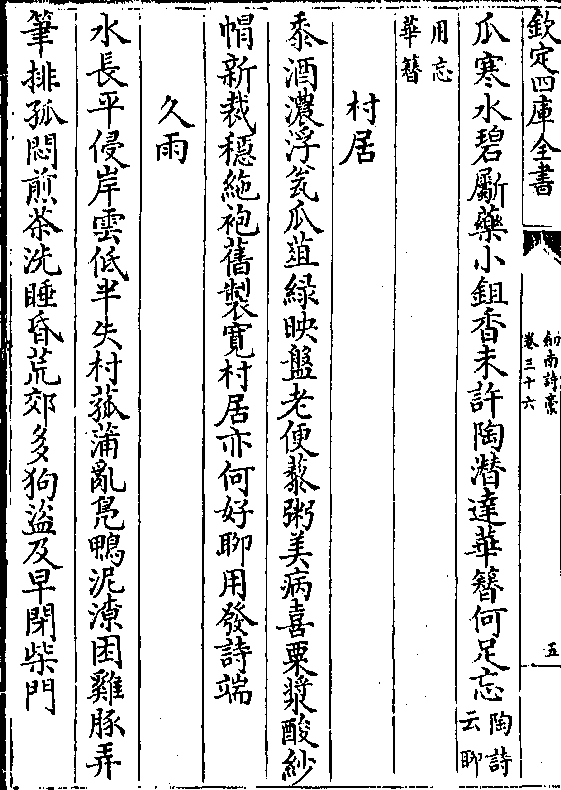 欽定四庫全書
劍南詩稾
卷三十六
五
瓜寒水碧㔉藥小鉏香未許陶潛達華簪何足忘陶詩
云聊
用忘
華簪
村居
黍酒濃浮瓮瓜葅緑映盤老便藜粥美病喜粟漿酸紗
帽新裁穩絁袍舊製寛村居亦何好聊用發詩端
久雨
水長平侵岸雲低半失村菰蒲亂鳬鴨泥潦困雞豚弄
筆排孤悶煎茶洗睡昏荒郊多狗盗及早閉柴門